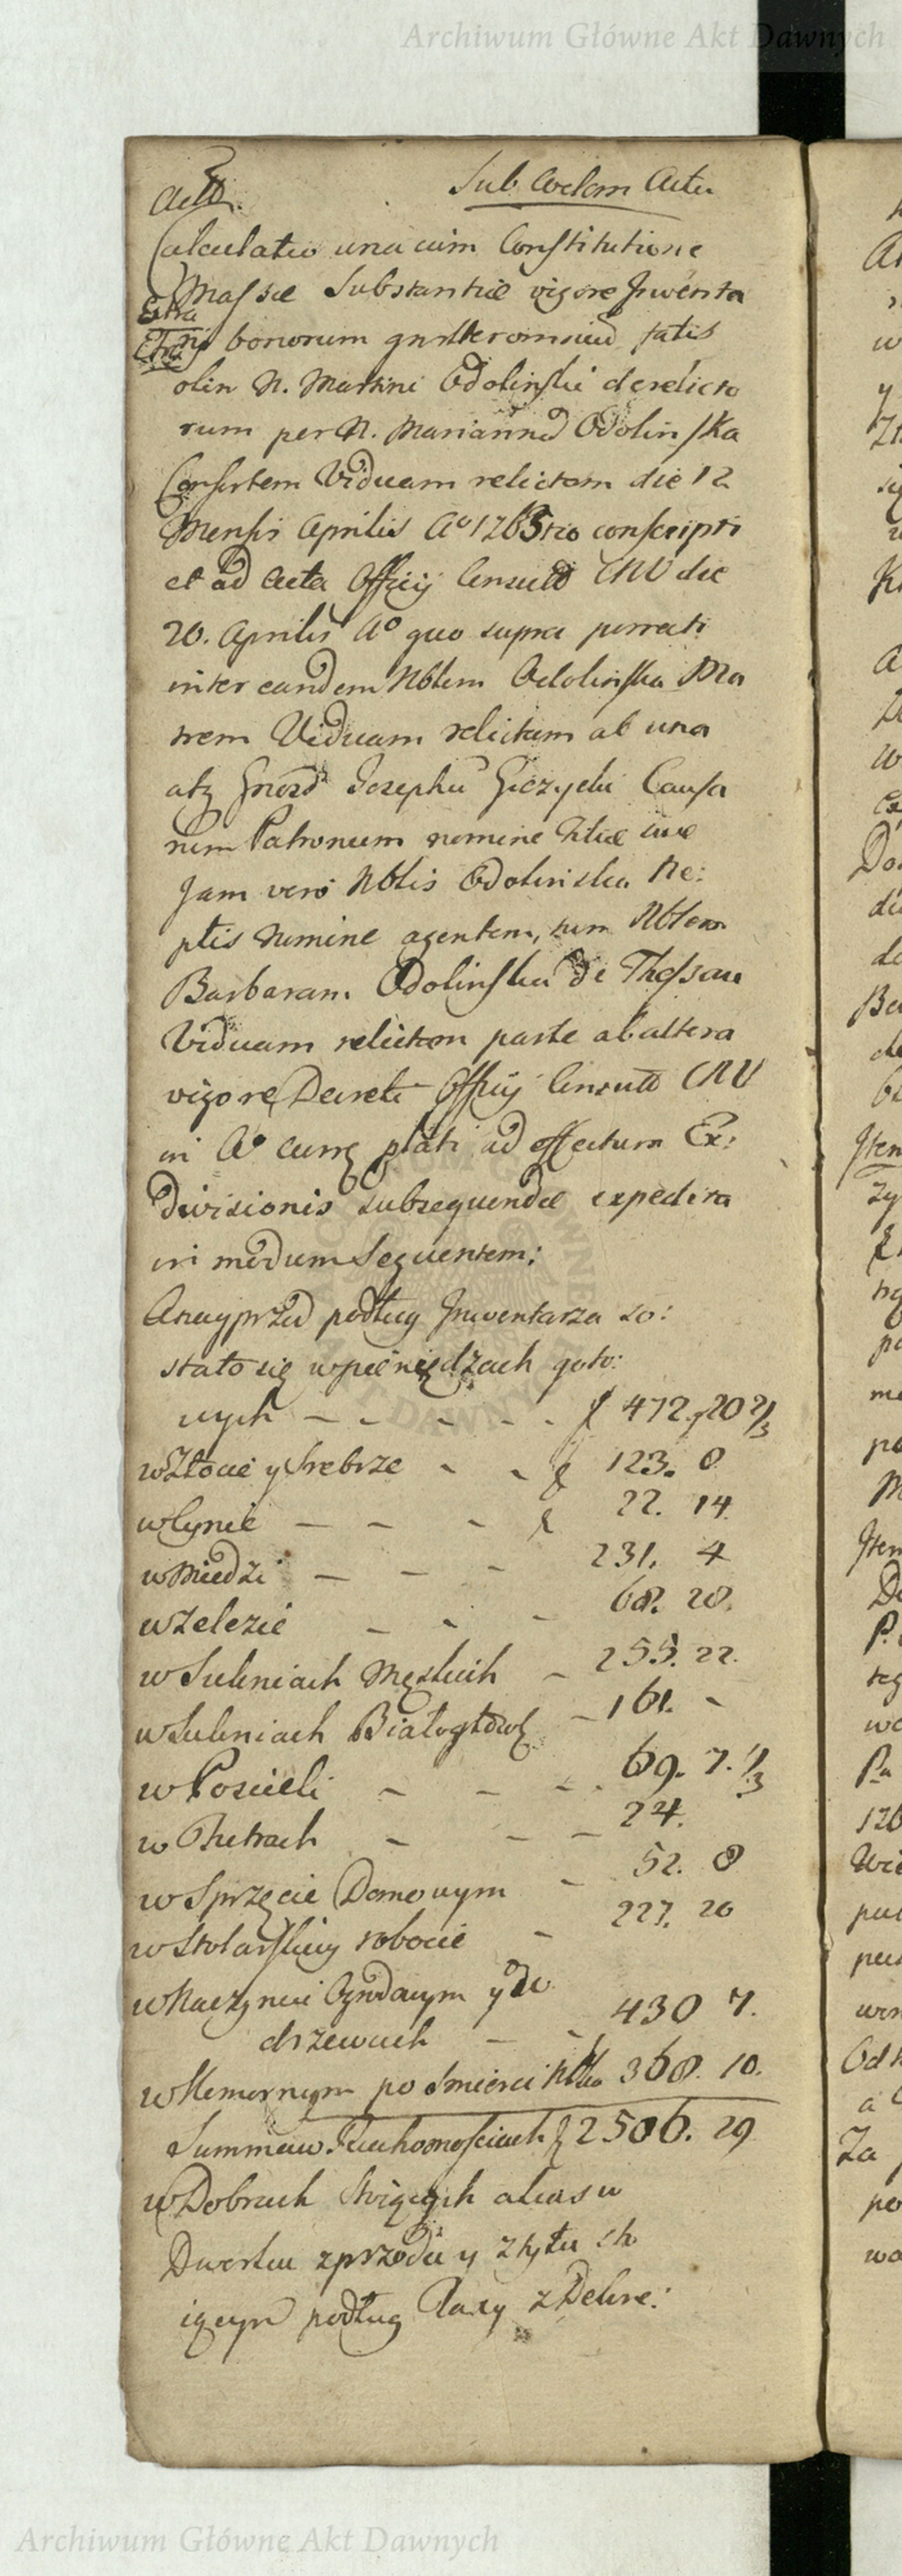 Archiwum Główne Akt Dawnych
Actū. Sub Eodem Actu
Calculatio una cum Constitutione
Massae Substantiae vigore Inventa
Extra
rij bonorum omnium fatis
olim N. Martini Odolinski derelicto
rum per N. Mariannā Odolinska
Consortem Viduam relictam die 12
Mensis Aprilis Aº 1765tio conscripti
et ad Acta Officij Consulū CNV die
20. Aprilis Aº quo supra porrecti
inter eandem Nblem Odolinska Ma
trem Viduam relictam ab una
atq Gnosū Josephū Giczycki Causa
rum Patronum nomine Filiae suae
Jam vero Nblis Odolinska Ne:
ptis Nomine agentem, tum Nblem
Barbaram Odolinska de Thessau
Viduam relictam parte ab altera
vigore Decreti Officij Consulū CNV
in Aº curr lati ad effectum Ex:
Divisionis subsequendae expedita
in modum Sequentem:
Anayprzod podług Inwentarza zo:
stało się w pieniędzach goto:
wych – – – – – f 472. g 20 2/3
w Złocie y Srebrze – – f 123. 8
w Cynie – – – f 22. 14
w Miedzi – – – 231. 4
w Zelezie – – – 68. 28.
w Sukniach Męskich – 255. 22.
w Sukniach Białogłow – 161. –
w Poscieli – – – 69. 7. 1/3
w Futrach – – – 24.
w Sprzęcie Domowym – 52. 8
w Stolarskiey robocie – 227. 20
w Naczyniu Ogrodowym y w
drzewach – – 430 7.
w Komornym po Smierci Nbla 368. 10.
Summa w Ruchomościach f 2506. 29
w Dobrach Stoiących alias w
Dworku z przodu y z tyłu sto
iącym podług Taxy z Dekre:
Archiwum Główne Akt Dawnych